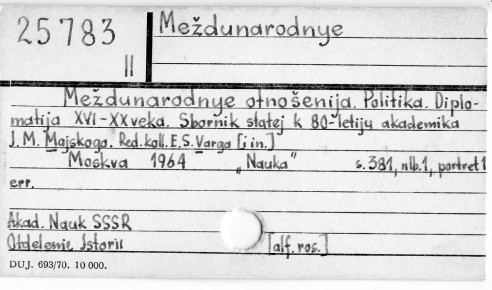 25783
II
Meždunarodnye
Meždunarodnye otnošenija. Politika. Diplo-
matija XVI-XX veka. Sbornik statej k 80-letiju akademika
J. M. Majskogo. Red. koll. E. S. Varga [i in.]
Moskva 1964 „Nauka" s. 381, nlb. 1, portret 1
err.
Akad. Nauk SSSR
Otdelenie Istorii [alf. ros.]
DUJ. 693/70. 10 000.